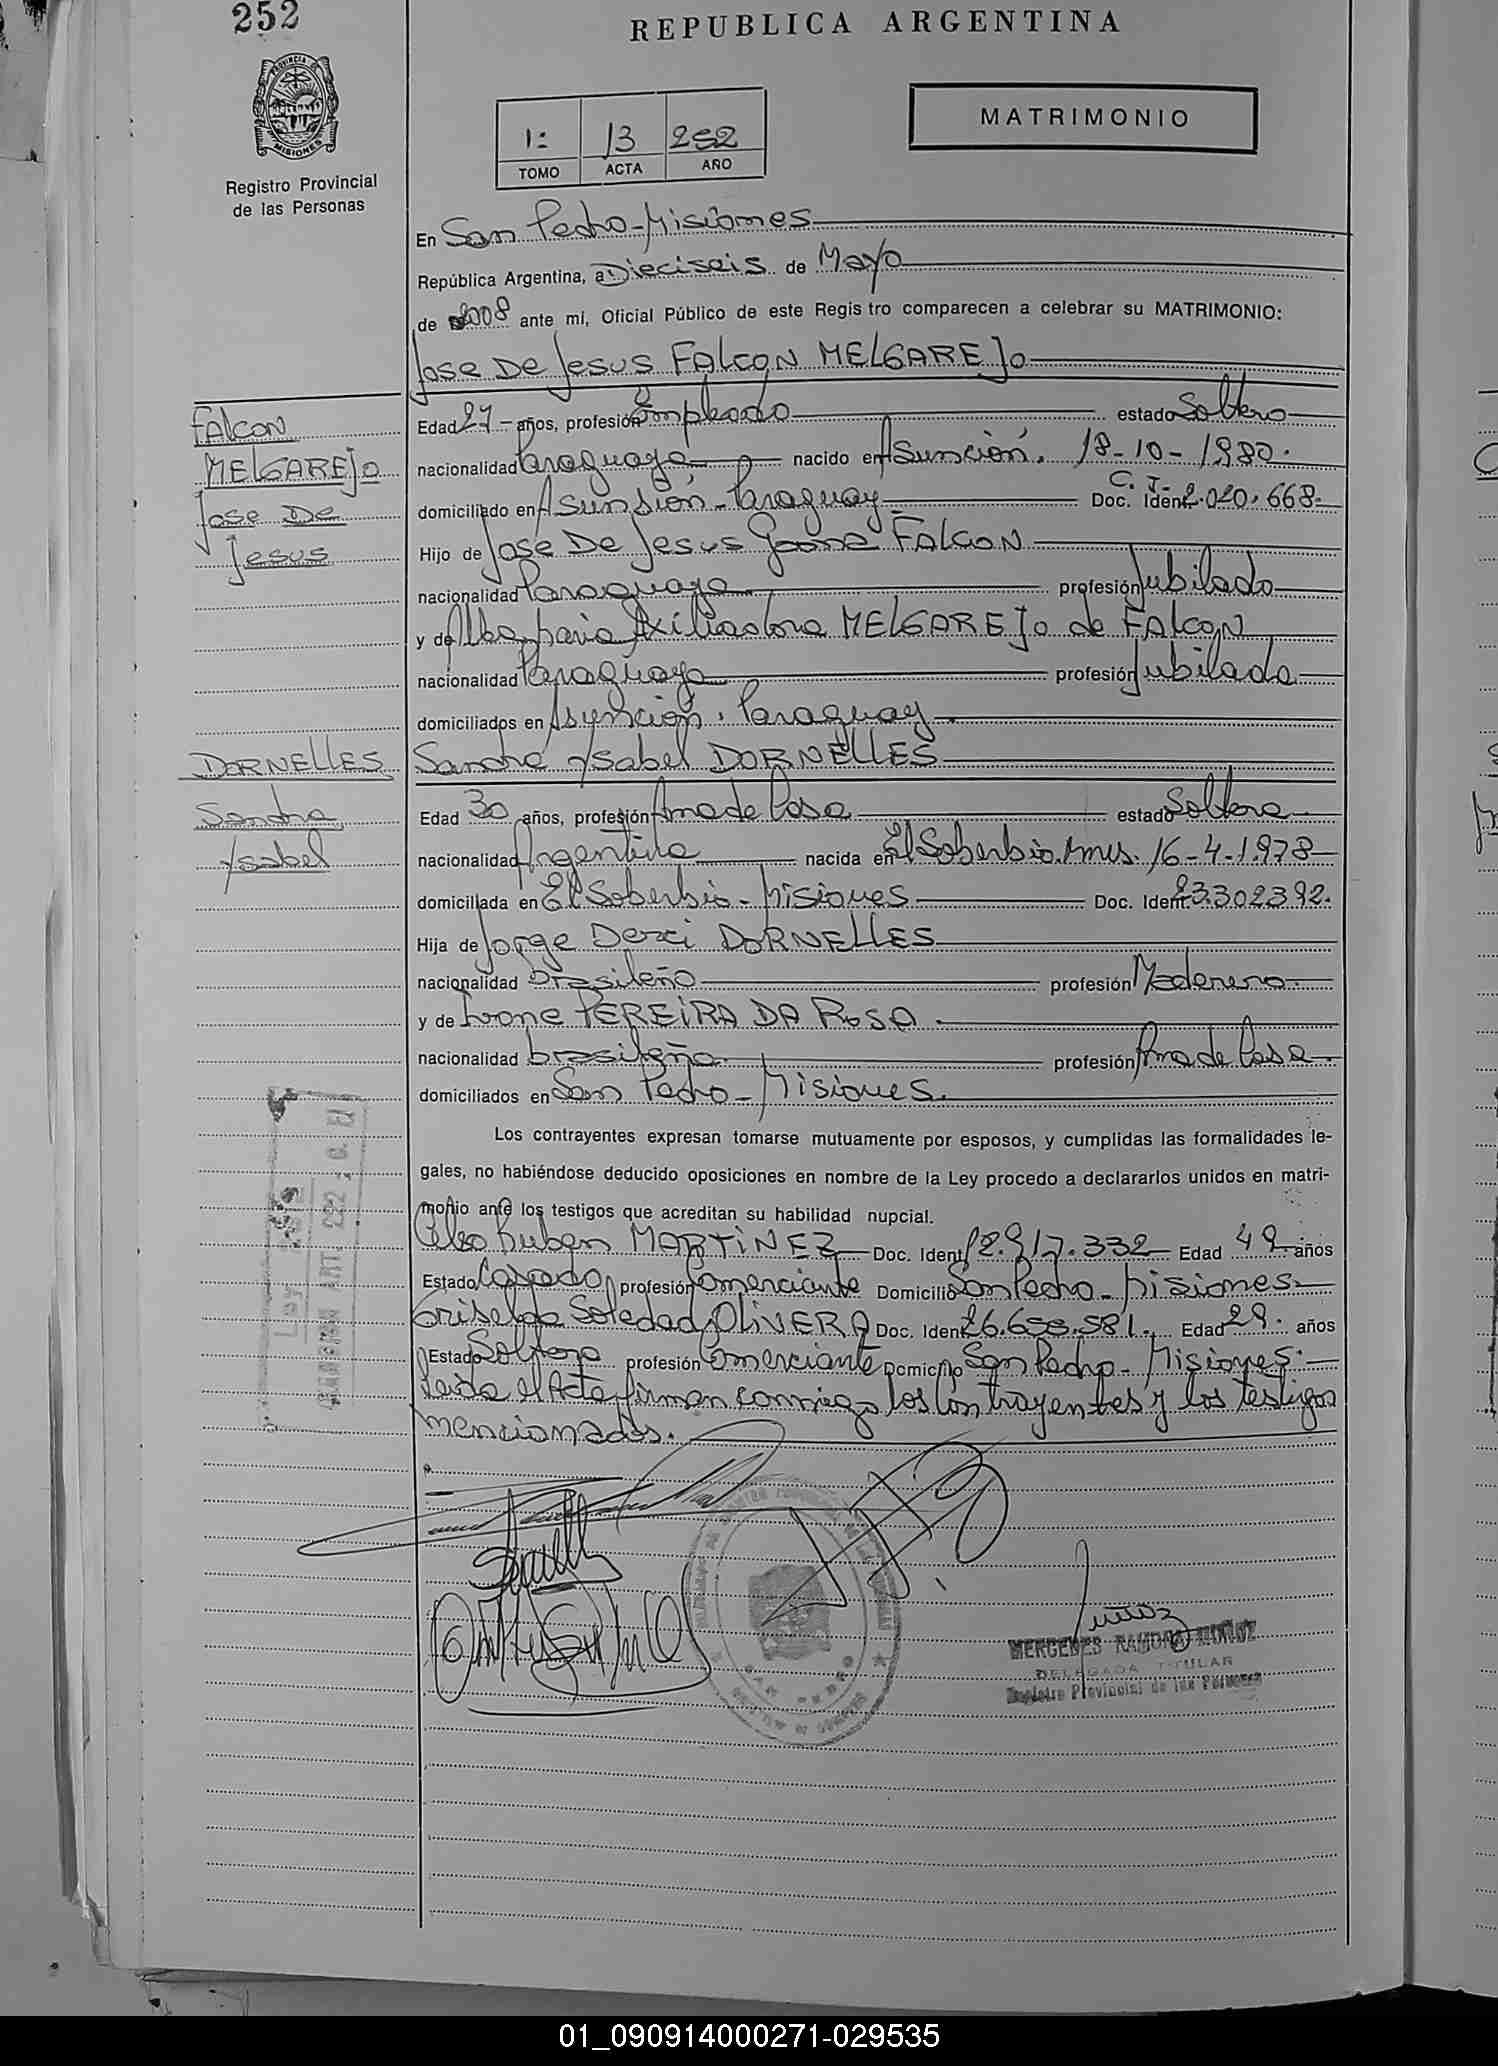 252
REPUBLICA ARGENTINA
MATRIMONIO
1: 13 252
TOMO ACTA AÑO
PROVINCIA DE
MISIONES
Registro Provincial
de las Personas
En San Pedro-Misiones
República Argentina, a Dieciseis de Mayo
de 2008 ante mí, Oficial Público de este Regis tro comparecen a celebrar su MATRIMONIO:
Jose De Jesus FALCON MELGAREJO
FALCON
MELGAREJO
Jose De
Jesus
Edad 27 años, profesión Empleado estado Soltero
nacionalidad Paraguaya nacido en Asunción. 18-10-1980.
domiciliado en Asunsión-Paraguay Doc. Ident C. I. 2.020.668-
Hijo de Jose De Jesus FALCON
nacionalidad Paraguaya profesión Jubilado
y de Alba MELGAREJO de FALCON
nacionalidad Paraguaya profesión Jubilada
domiciliados en Asunción. Paraguay
DORNELLES
Sandra
Ysabel
Sandra Ysabel DORNELLES
Edad 30 años, profesión Ama de Casa estado Soltera
nacionalidad Argentina nacida en El Soberbio. Mnes. 16-4-1.978
domiciliada en El Soberbio-Misiones Doc. Ident 23302392.
Hija de Jorge Derci DORNELLES
nacionalidad brasileño profesión Maderero
y de Ivone PEREIRA DA ROSA
nacionalidad brasileña profesión Ama de Casa.
domiciliados en San Pedro-Misiones.
Los contrayentes expresan tomarse mutuamente por esposos, y cumplidas las formalidades le-
gales, no habiéndose deducido oposiciones en nombre de la Ley procedo a declararlos unidos en matri-
monio ante los testigos que acreditan su habilidad nupcial.
Celso Ruben MARTINEZ Doc. Ident 12.917.332 Edad 49 años
Estado Casado profesión Comerciante Domicilio San Pedro-Misiones
Griselda Soledad OLIVERA Doc. Ident 26.658.581. Edad 29. años
Estado Soltera profesión Comerciante Domicilio San Pedro-Misiones.
Leida el Acta firman conmigo los Contrayentes y los testigos
mencionados.
ART. 222
MERCEDES RAMONA MUÑOZ
DELEGADA TITULAR
Registro Provincial de las Personas
01_090914000271-029535